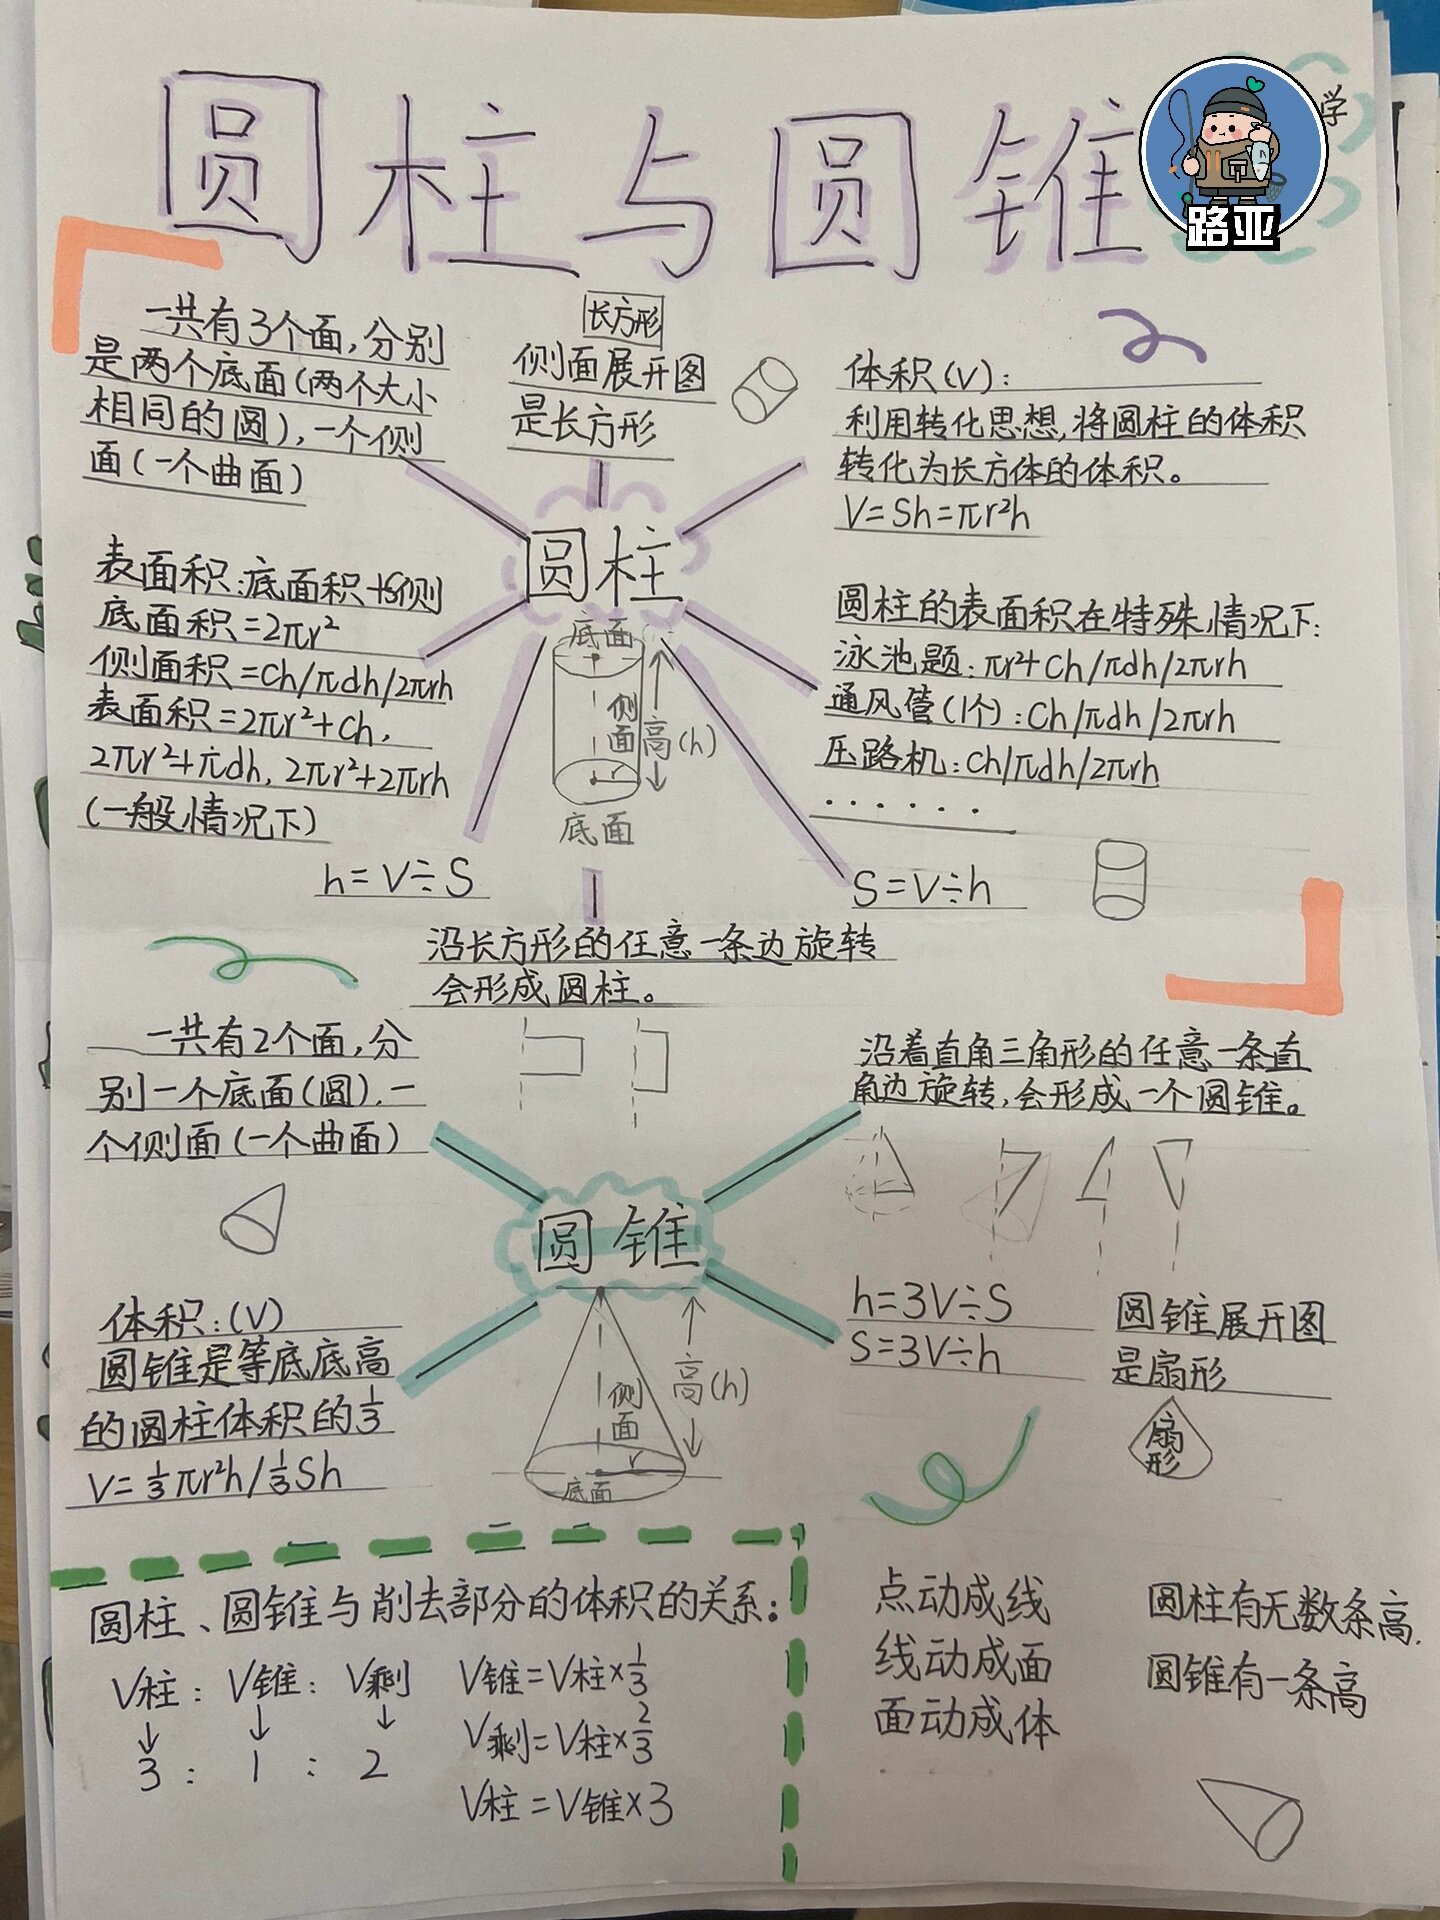 圆柱与圆锥
学
路亚
一共有3个面,分别
是两个底面(两个大小
相同的圆),一个侧
面(一个曲面)
长方形
侧面展开图
是长方形
体积(V):
利用转化思想,将圆柱的体积
转化为长方体的体积。
V=Sh=πr²h
圆柱
表面积:底面积+S侧
底面积=2πr²
侧面积=Ch/πdh/2πrh
表面积=2πr²+Ch,
2πr²+πdh,2πr²+2πrh
(一般情况下)
底面
侧面
高(h)
r
底面
圆柱的表面积在特殊情况下:
泳池题:πr²+Ch/πdh/2πrh
通风管(1个):Ch/πdh/2πrh
压路机:Ch/πdh/2πrh
······
h=V÷S
S=V÷h
沿长方形的任意一条边旋转
会形成圆柱。
一共有2个面,分
别一个底面(圆),一
个侧面(一个曲面)
沿着直角三角形的任意一条直
角边旋转,会形成一个圆锥。
圆锥
体积:(V)
圆锥是等底底高
的圆柱体积的1/3
V=1/3πr²h/1/3Sh
侧面
高(h)
r
底面
h=3V÷S
S=3V÷h
圆锥展开图
是扇形
扇形
圆柱、圆锥与削去部分的体积的关系:
V柱:V锥:V剩
3:1:2
V锥=V柱×1/3
V剩=V柱×2/3
V柱=V锥×3
点动成线
线动成面
面动成体
圆柱有无数条高.
圆锥有一条高